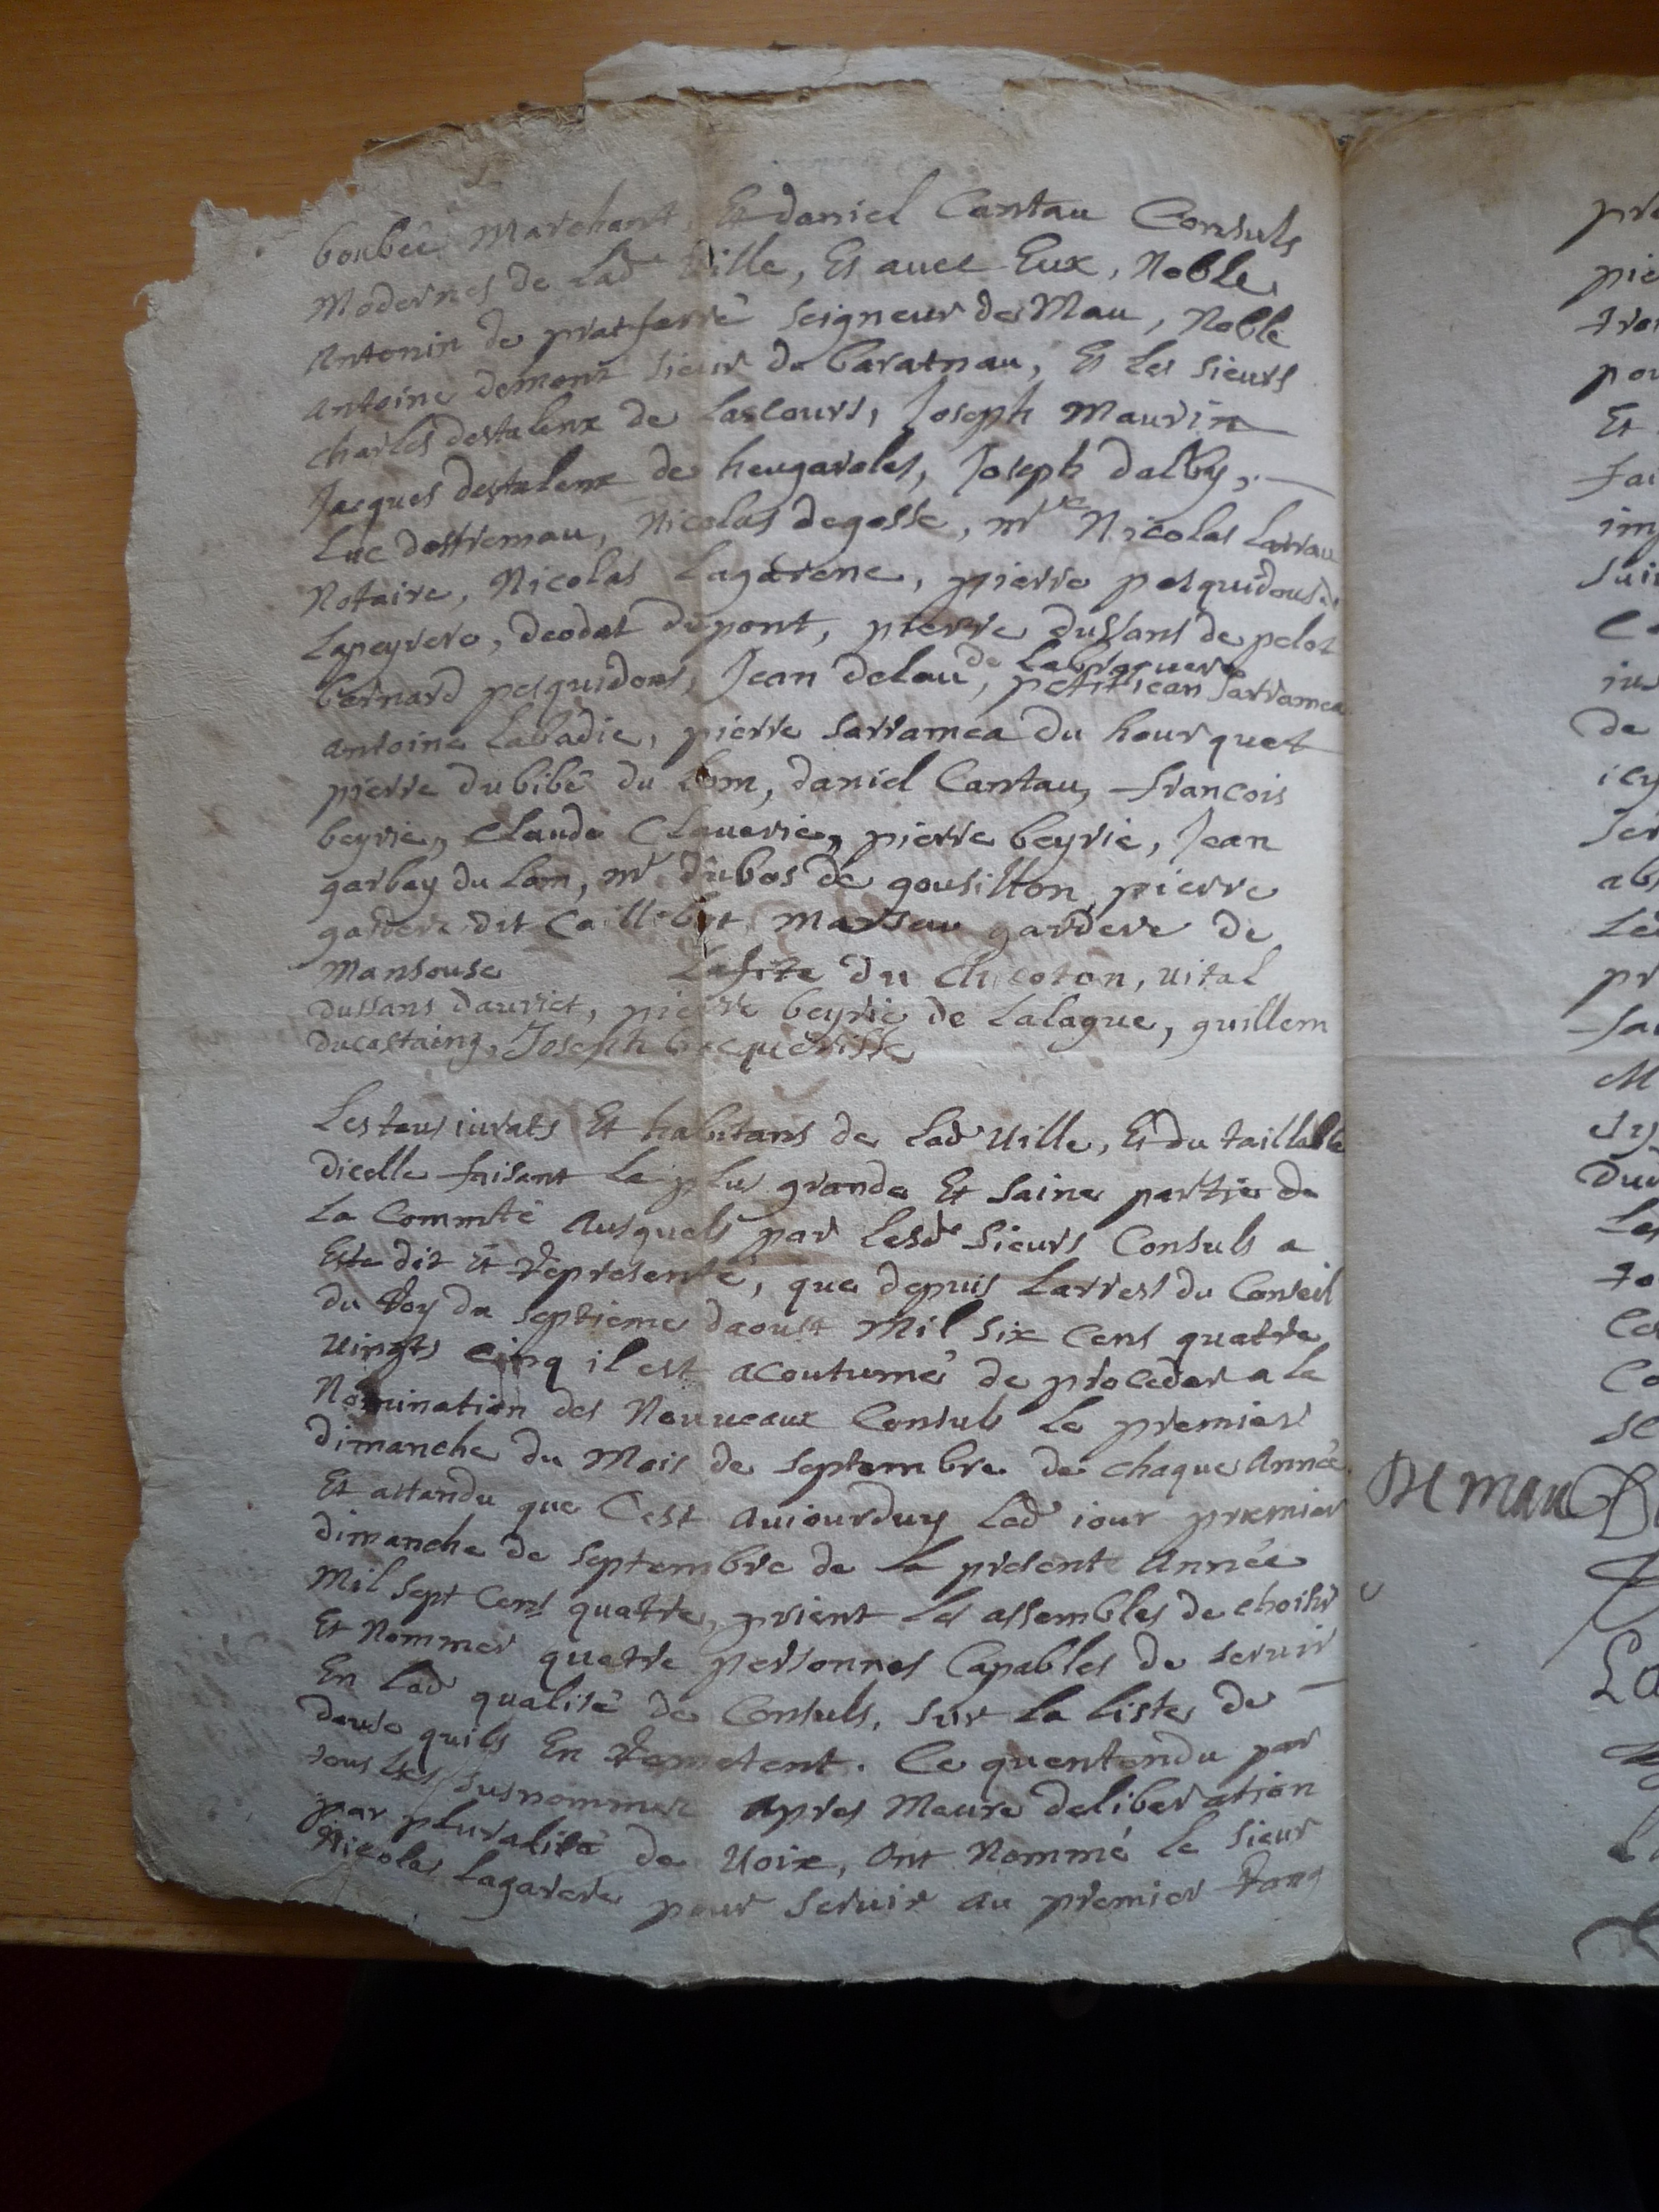 boubée Marchant, Et daniel Cantau Consuls
Modernes de Lade Uille, Et auec Eux, Noble
Antonin de pratferré Seigneur de Mau, Noble
Antoine demont Sieur de Caratnau, Et Les Sieurs
Charles destalenx de Lascours, Joseph Maurin
Jacques destalenx de heugaroles, Joseph dalby,
Luc destremau, Nicolas degosse, mre Nicolas Larrau
Notaire, Nicolas Lagarene, pierre pesquidous de
Lapeyrere, deodat dupont, pierre dussans de pelot
bernard pesquidous, Jean delau de Labroquere, petit Jean Sarramea
Antoine Labadie, pierre Sarramea du hourquet
pierre dubibé du Lom, daniel Cantau, francois
beyrie, Claude Clauerie, pierre beyrie, Jean
garbay du Lom, mr dubos de gousillon, pierre
gardere dit Ca gardere de
Mansouse Lafite du Chicoton, uital
Dussans dauriet, pierre beyrie de Lalague, guillem
Ducastaing, Joseph
Les tous iurats Et habitans de Lad Uille, Et du taillable
dicelle faisant La plus grande Et Saine partie de
La Commte Ausquels par Lesde Sieurs Consuls a
Este dit Et Represente, que depuis Larrest du Conseil
du Roy du Septieme daoust Mil Six Cens quatre
Uingts cinq il est acoutumé de proceder a la
Nomination des Nouueaux Consuls Le premier
dimanche du Mois de Septembre de chaque Année
Et attandu que C'est Auiourduy Lad iour premier
dimanche de Septembre de La presente Année
Mil Sept Cens quatre, prient Les assembles de choisir
Et Nommer quatre personnes Capables de Seruir
En Lad qualité de Consuls, Sur La Liste de
douse quils En Remetent. Ce quentendu par
tous Les Susnommez Apres Meure deliberation
par pluralité de Uoix, Ont Nommé Le Sieur
Nicolas Lagarere pour Seruir au premier Rang
pre
pie
pou
Et
fai
im
Sui
de
icy
Ser
abs
pr
dud
Les
Co
DEmau
La